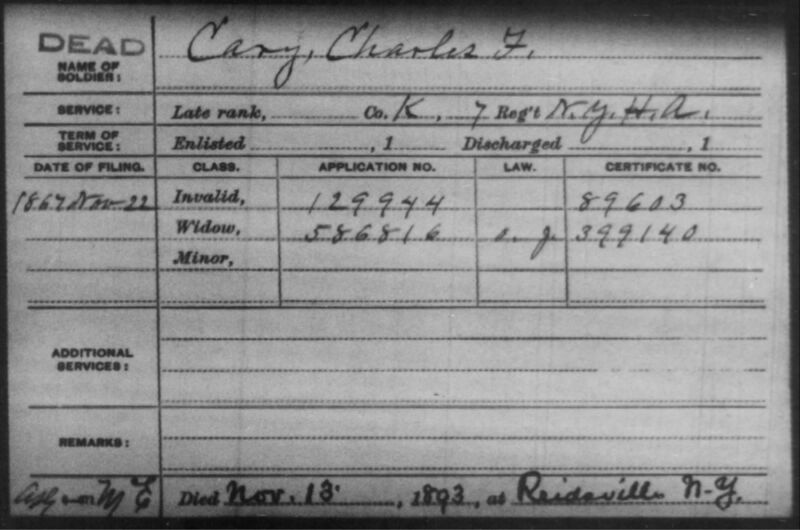 DEAD
NAME OF SOLDIER: Cary, Charles F.
SERVICE: Late rank, Co. K, 7 Reg't N.Y.H.A.
TERM OF SERVICE: Enlisted , 1 Discharged , 1
DATE OF FILING. CLASS. APPLICATION NO. LAW. CERTIFICATE NO.
1867 Nov 22 Invalid, 129944 89603
Widow, 586816 o. g. 399140
Minor,
ADDITIONAL SERVICES:
REMARKS:
Died Nov. 13, 1893, at Reidsville N-Y.